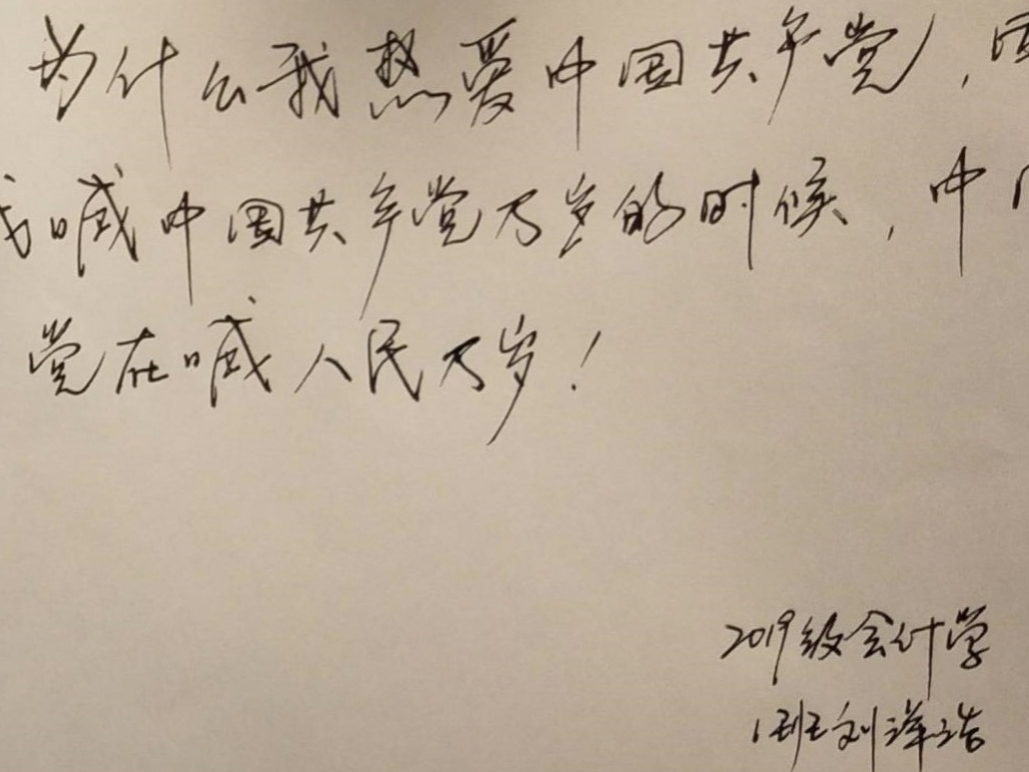 为什么我热爱中国共产党，因
我喊中国共产党万岁的时候，中
党在喊人民万岁！
2019级会计学
1班刘洋浩